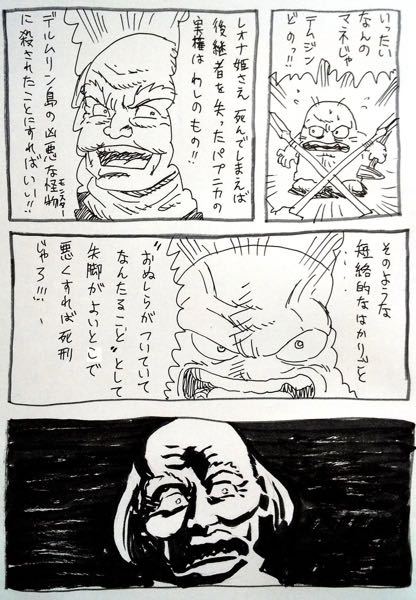 いったい
なんの
マネじゃ
テムジン
どのっ!!
レオナ姫さえ死んでしまえば
後継者を失ったパプニカの
実権はわしのもの!!
デルムリン島の凶悪な怪物
モンスター
に殺されたことにすればいいー!!
そのような
短絡的なはかりごと
‥‥
"おぬしらがついていて
なんたること"として
失脚がよいとこで
悪くすれば死刑
じゃろ!!!、、